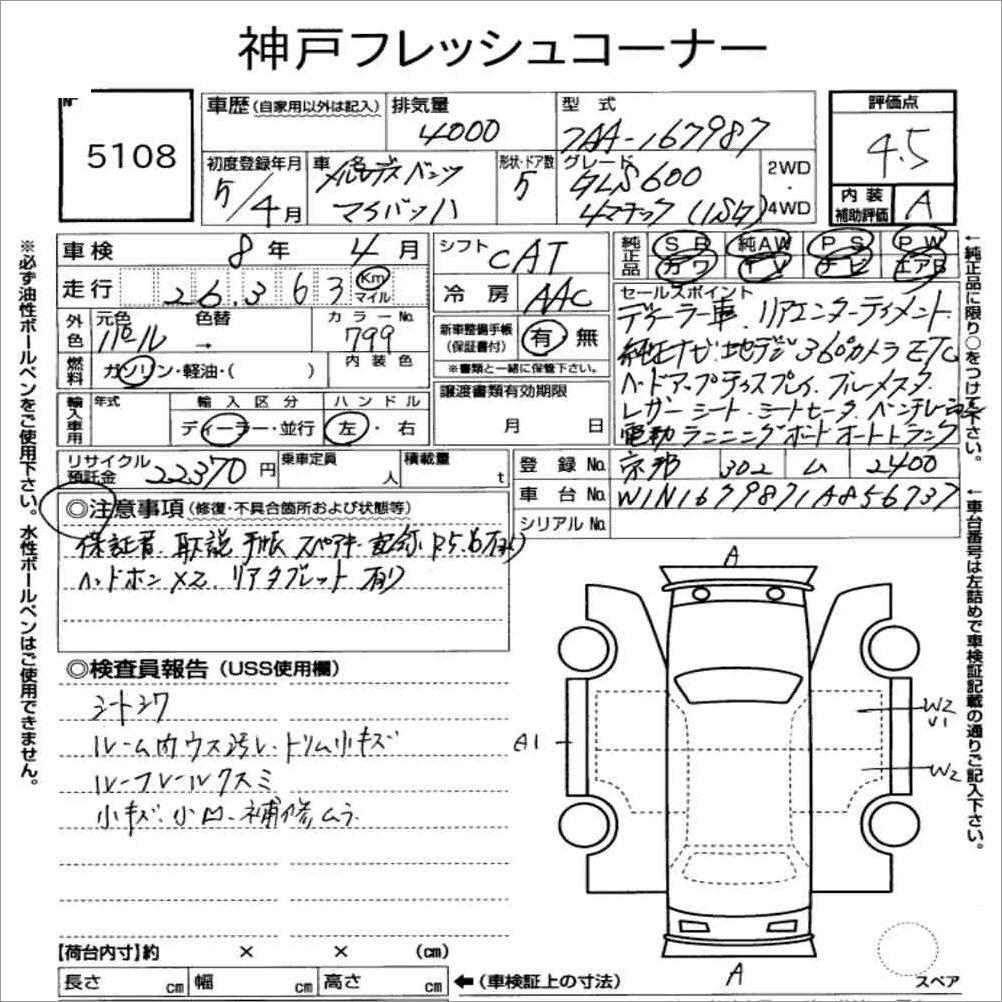 神戸フレッシュコーナー
5108
車歴(自家用以外は記入)
排気量
4000
型式
7AA-167987
評価点
4.5
初度登録年月
5/4月
車名
メルセデスベンツ
マイバッハ
形状・ドア数
5
グレード
GLS600
4マチック(ISG)
2WD
・
4WD
内装
補助評価
A
※必ず油性ボールペンをご使用下さい。水性ボールペンはご使用できません。
車検 8年 4月
シフト CAT
純正品
SR 純AW PS PW
カワ TV ナビ エアB
走行 26,363 Km
マイル
冷房 AAC
外色
元色 色替 カラーNo.
パール → 799
内装色
新車整備手帳
(保証書付)
有 無
※書類と一緒に保管下さい。
燃料
ガソリン・軽油・( )
セールスポイント
ディーラー車、リアエンターテイメント
純正ナビ 地デジ 360°カメラ ETC
ヘッドアップディスプレイ、ブルメスタ
レザーシート・シートヒータ・ベンチレーション
電動ランニングボード オートトランク
輸入車用
年式
輸入区分
ディーラー・並行
ハンドル
左・右
譲渡書類有効期限
月 日
リサイクル
預託金
22370円
乗車定員
人
積載量
t
登録No. 京都 302 ム 2400
車台No. W1N1679871A856737
シリアルNo.
←純正品に限り○をつけて下さい。
←車台番号は左詰めで車検証記載の通りご記入下さい。
◎注意事項(修復・不具合箇所および状態等)
保証書、取説 手帳 スペアキー 記録 R5.6有り
ヘッドホン×2、リアタブレット 有り
◎検査員報告(USS使用欄)
シートシワ
ルーム内ウス汚レ、トリム小キズ
ルーフレールクスミ
小キズ、小凹、補修ムラ
A
A1
W2
U1
W2
A
スペア
【荷台内寸】約 × × (cm)
長さ cm 幅 cm 高さ cm ←(車検証上の寸法)